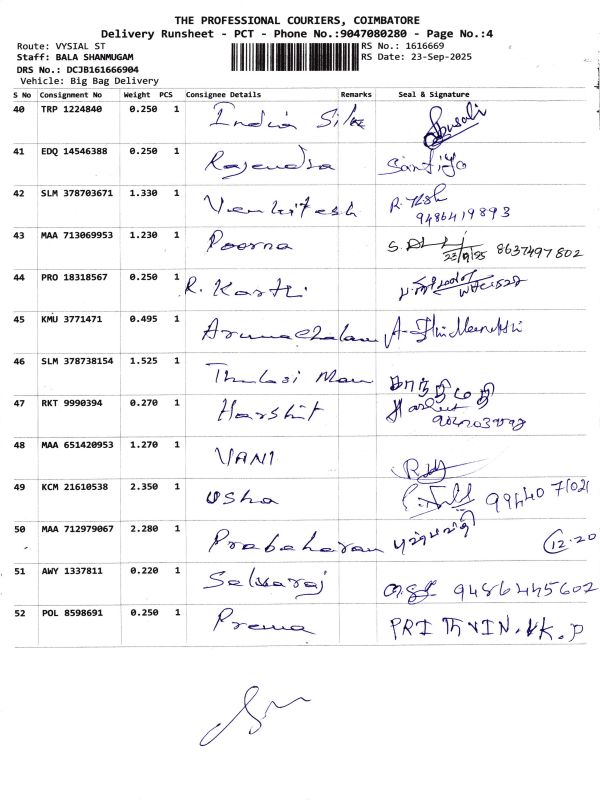 THE PROFESSIONAL COURIERS, COIMBATORE
Delivery Runsheet - PCT - Phone No.:9047080280 - Page No.:4
Route: VYSIAL ST RS No.: 1616669
Staff: BALA SHANMUGAM RS Date: 23-Sep-2025
DRS No.: DCJB161666904
Vehicle: Big Bag Delivery
S No Consignment No Weight PCS Consignee Details Remarks Seal & Signature
40 TRP 1224840 0.250 1 India Silk
41 EDQ 14546388 0.250 1 Rajendra Santiyo
42 SLM 378703671 1.330 1 Venkitesh R.
9486419893
43 MAA 713069953 1.230 1 Poorna S. 8637497802
23/9/25
44 PRO 18318567 0.250 1 R. Karthi
45 KMU 3771471 0.495 1 Arunachalam A-
46 SLM 378738154 1.525 1 Thulasi Mani
47 RKT 9990394 0.270 1 Harshit
48 MAA 651420953 1.270 1 VANI
49 KCM 21610538 2.350 1 Usha
50 MAA 712979067 2.280 1 Prabaharan 12.20
51 AWY 1337811 0.220 1 Selvaraj 9486445602
52 POL 8598691 0.250 1 Prema PRITHVIN.VK.P